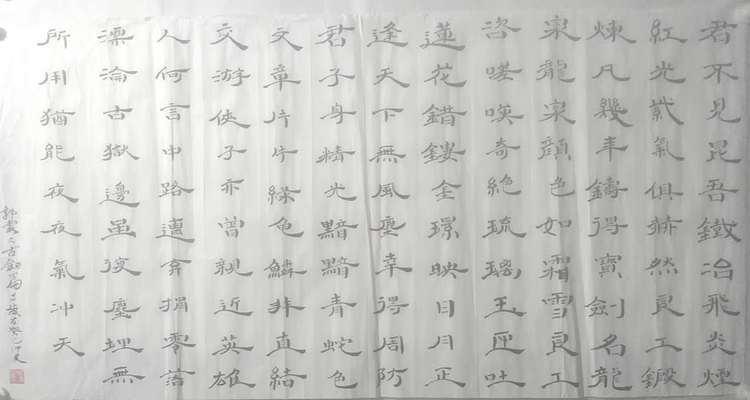 君不見昆吾鐵冶飛炎煙
紅光紫氣俱赫然良工鍛
煉凡幾年鑄得寶劍名龍
泉龍泉顏色如霜雪良工
咨嗟嘆奇絕琉璃玉匣吐
蓮花錯鏤金環映日月正
逢天下無風塵幸得周防
君子身精光黯黯青蛇色
文章片片綠色鱗非直結
交游俠子亦曾親近英雄
人何言中路遭棄捐零落
漂淪古獄邊虽復塵埋無
所用猶能夜夜氣沖天
郭震之古劍篇